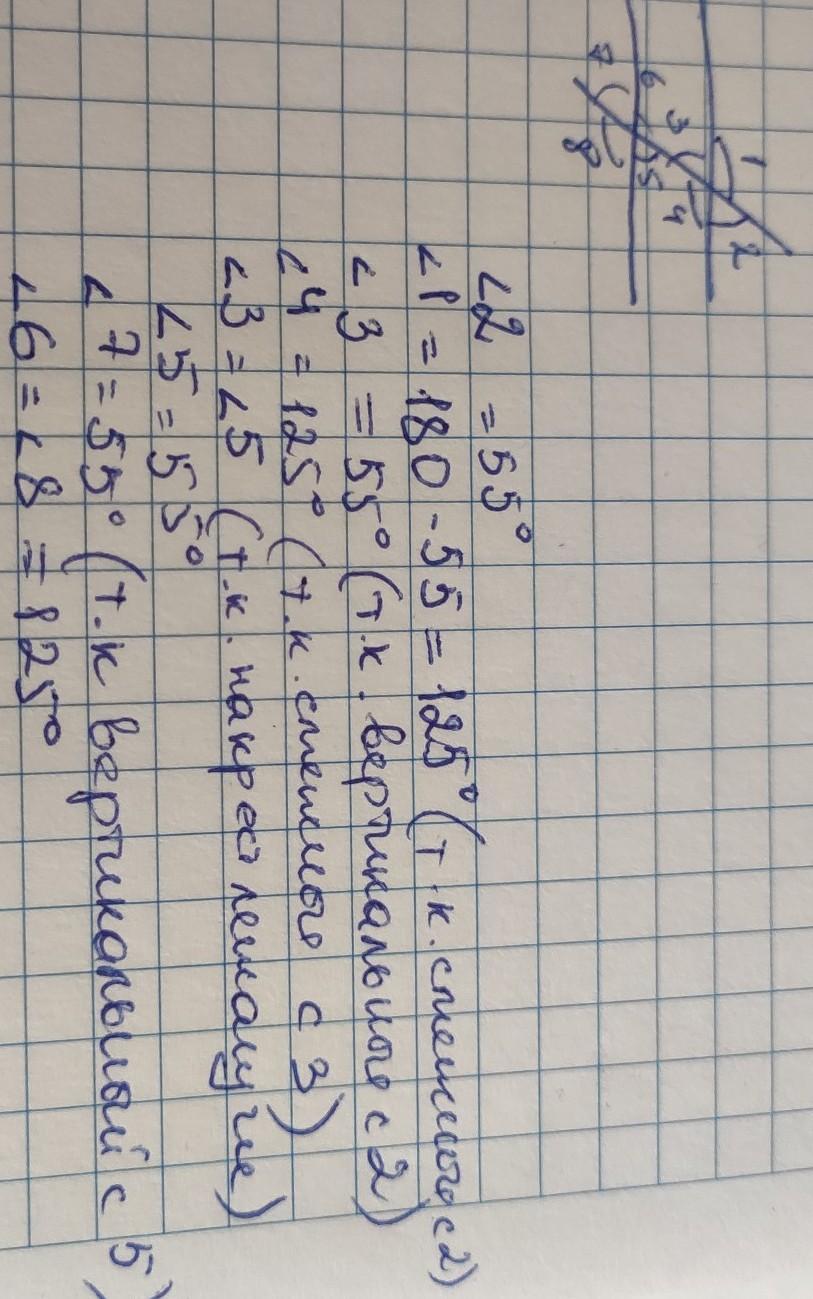 1 2
3 4
6 5
7 8
∠2 = 55°
∠1 = 180 - 55 = 125° (т.к. смежного с 2)
∠3 = 55° (т.к. вертикального с 2)
∠4 = 125° (т.к. смежного с 3)
∠3 = ∠5 (т.к. накрест лежащие)
∠5 = 55°
∠7 = 55° (т.к вертикальный с 5)
∠6 = ∠8 = 125°